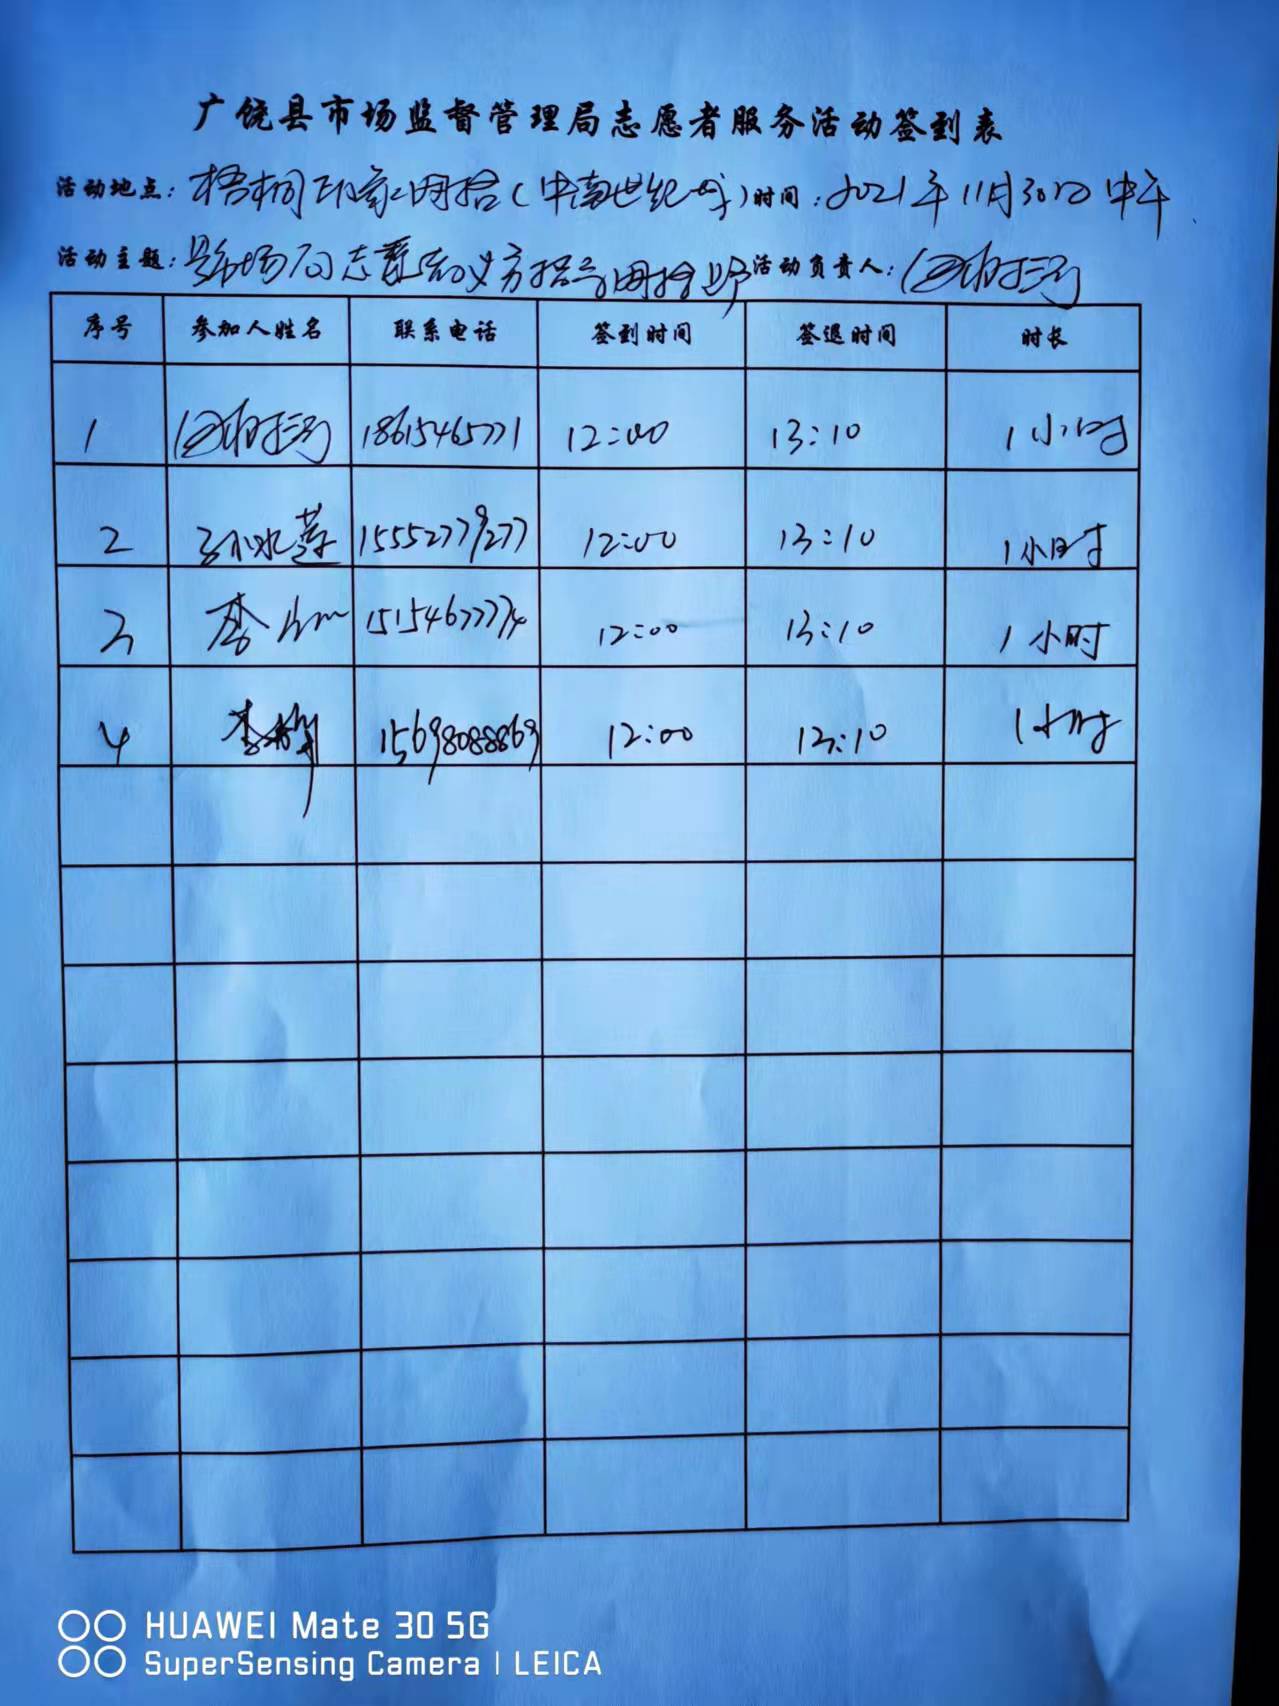 广饶县市场监督管理局志愿者服务活动签到表
活动地点：梧桐印象网格（中南世纪城）时间：2021年11月30日中午
活动主题：县市场局志愿 活动负责人：
序号 参加人姓名 联系电话 签到时间 签退时间 时长
1 18615465771 12:00 13:10 1小时
2 孙水莲 15552779277 12:00 13:10 1小时
3 李 15154677774 12:00 13:10 1小时
4 李 15698088869 12:00 13:10 1小时
HUAWEI Mate 30 5G
SuperSensing Camera | LEICA